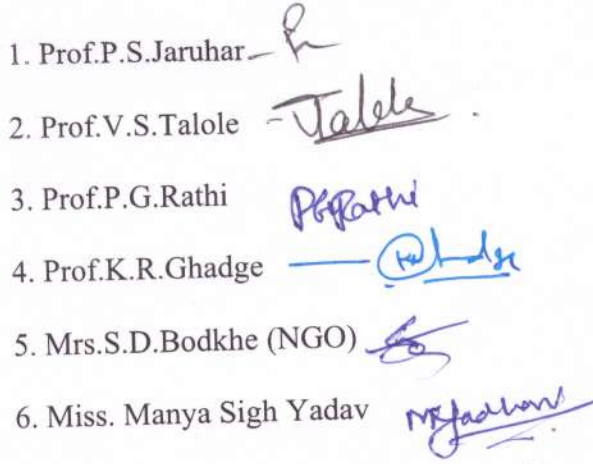 1. Prof.P.S.Jaruhar
2. Prof.V.S.Talole - Talole
3. Prof.P.G.Rathi PGRathi
4. Prof.K.R.Ghadge
5. Mrs.S.D.Bodkhe (NGO)
6. Miss. Manya Sigh Yadav